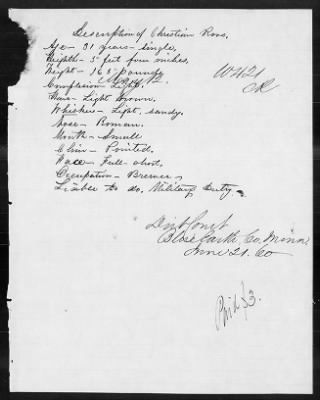 Description of Christian Roos.
Age – 31 years – single,
Heighth – 5 feet four inches.
Weight – 165 pounds
Complexion – Light.
Hair – Light brown.
Whiskers – Light, sandy.
Nose – Roman.
Mouth – Small
Chin – Pointed.
Face – Full – short.
Occupation – Brewer –
Liable to do Military Duty –
Blue Earth, Co, Minn
June 21.